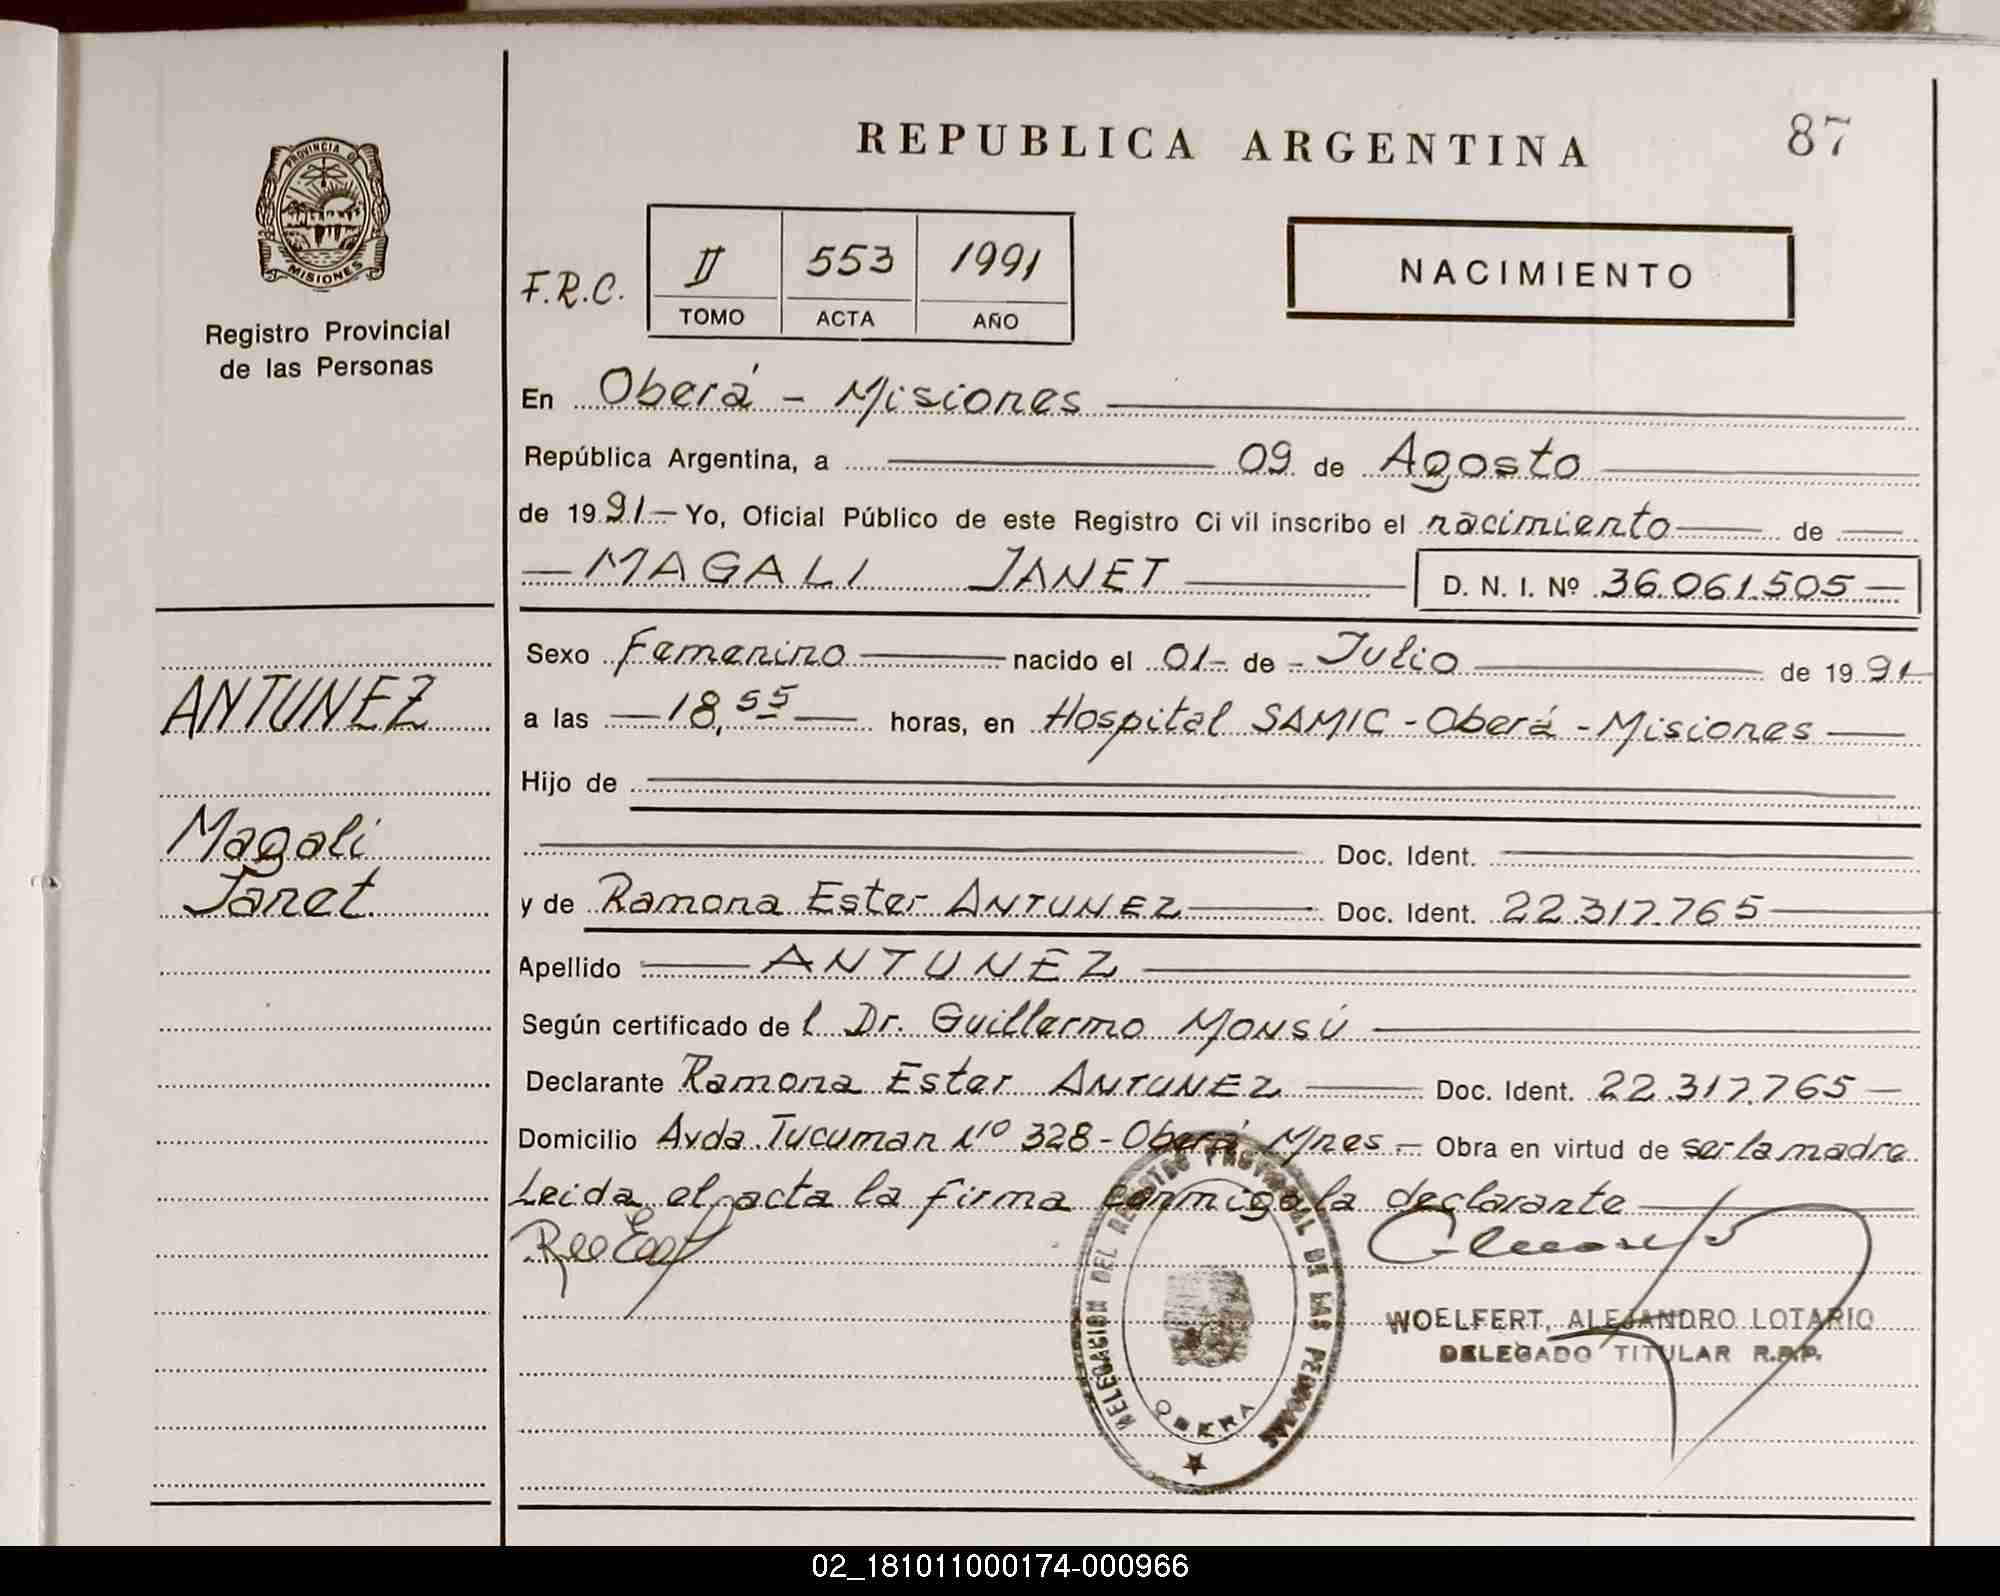 REPUBLICA ARGENTINA
87
PROVINCIA DE
MISIONES
Registro Provincial
de las Personas
F.R.C.
II 553 1991
TOMO ACTA AÑO
NACIMIENTO
En Oberá - Misiones
República Argentina, a 09 de Agosto
de 1991 Yo, Oficial Público de este Registro Ci vil inscribo el nacimiento de
MAGALI JANET D. N. I. Nº 36.061.505
ANTUNEZ
Magali
Janet
Sexo Femenino nacido el 01 de Julio de 1991
a las 18,55 horas, en Hospital SAMIC - Oberá - Misiones
Hijo de
Doc. Ident.
y de Ramona Ester ANTUNEZ Doc. Ident. 22.317.765
Apellido ANTUNEZ
Según certificado de l Dr. Guillermo MONSÚ
Declarante Ramona Ester ANTUNEZ Doc. Ident. 22.317.765
Domicilio Avda. Tucuman Nº 328 - Oberá Mnes - Obra en virtud de ser la madre
Leida el acta la firma conmigo la declarante
DELEGACION DEL REGISTRO PROVINCIAL DE LAS PERSONAS
OBERA
WOELFERT, ALEJANDRO LOTARIO
DELEGADO TITULAR R.P.P.
02_181011000174-000966